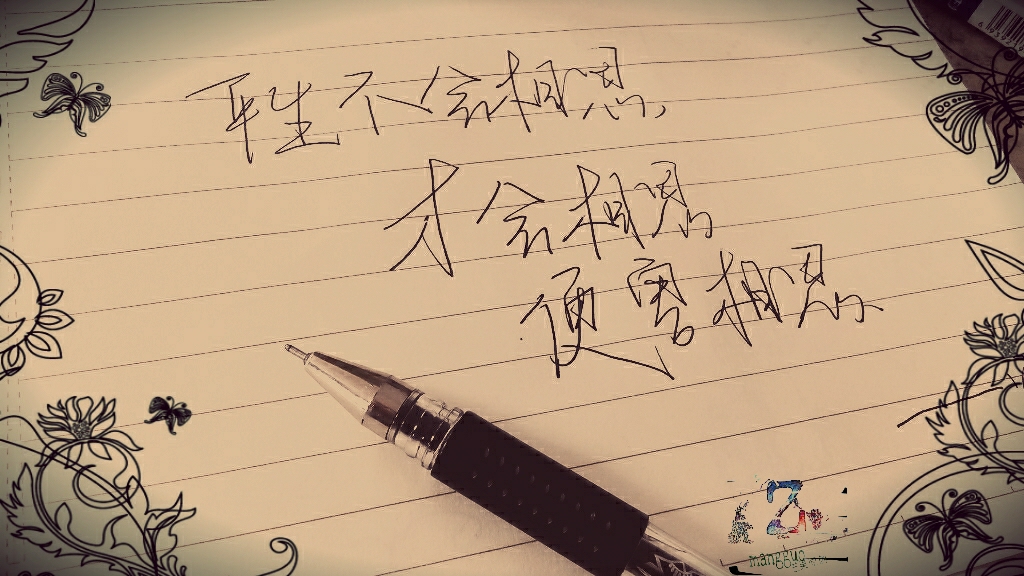 平生不会相思，
才会相思
便害相思